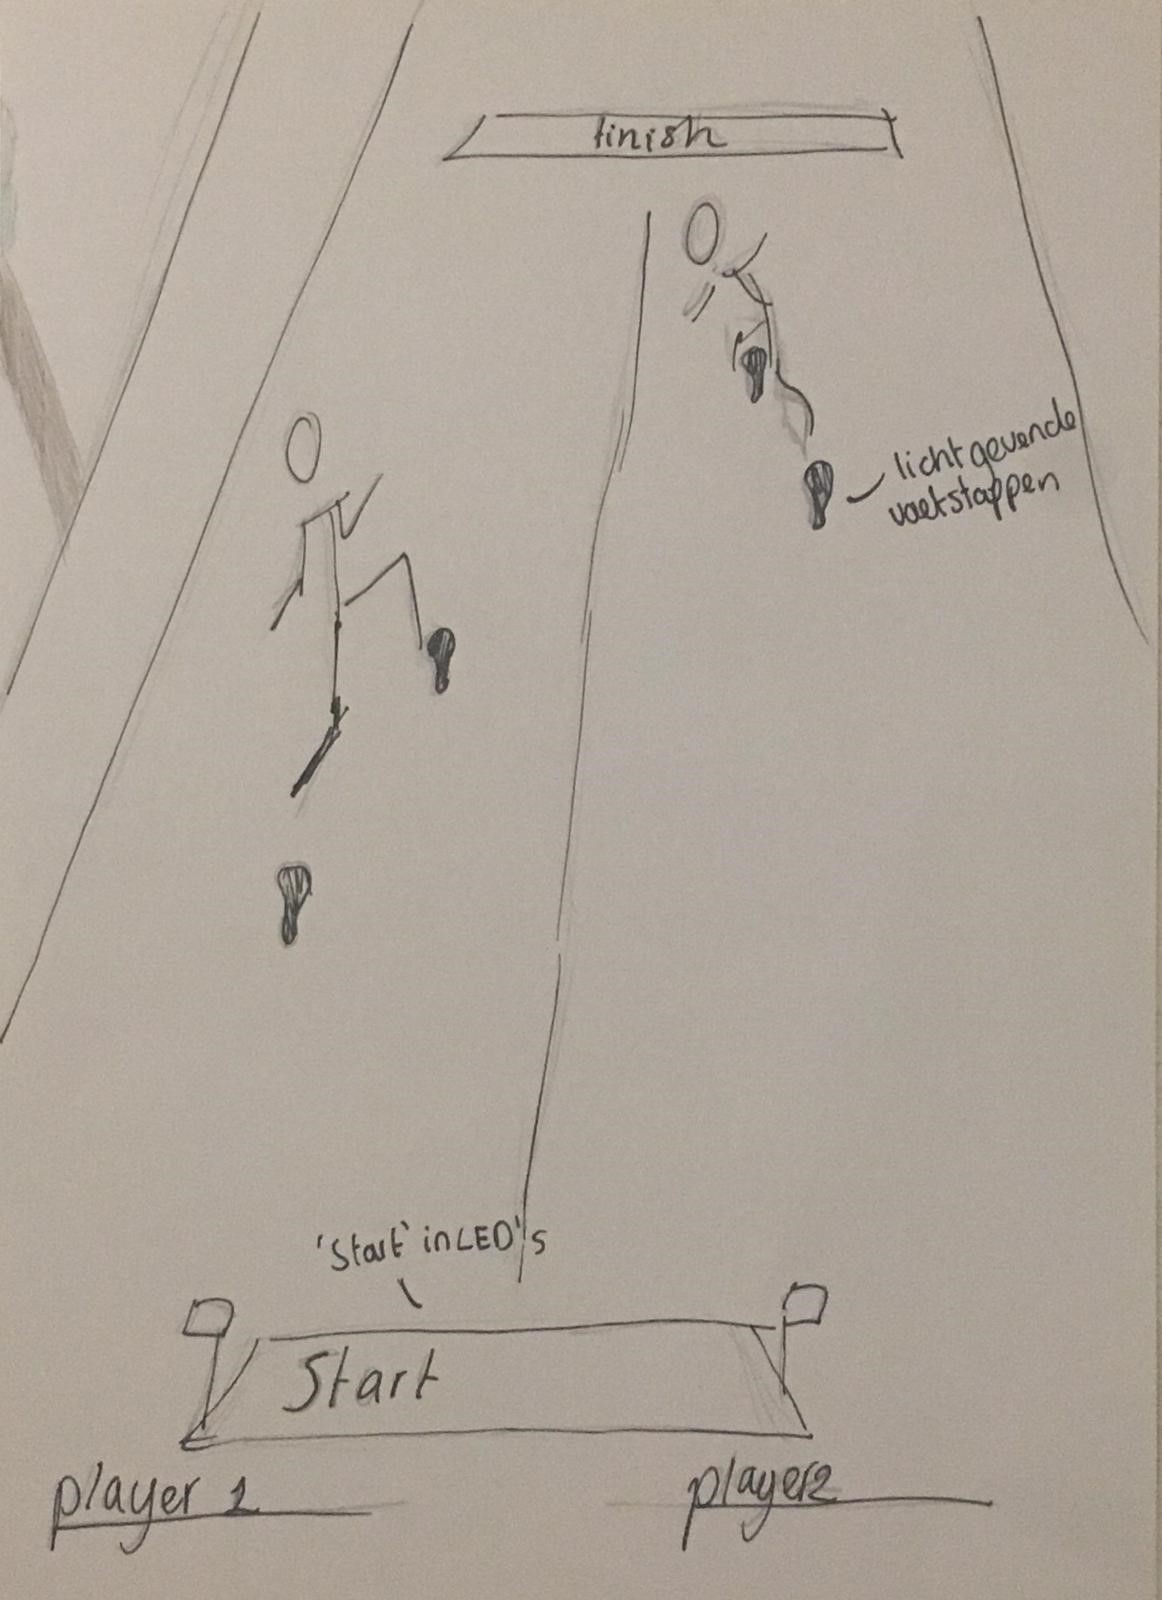 finish
lichtgevende
voetstappen
'Start' in LED's
Start
player 1
player 2